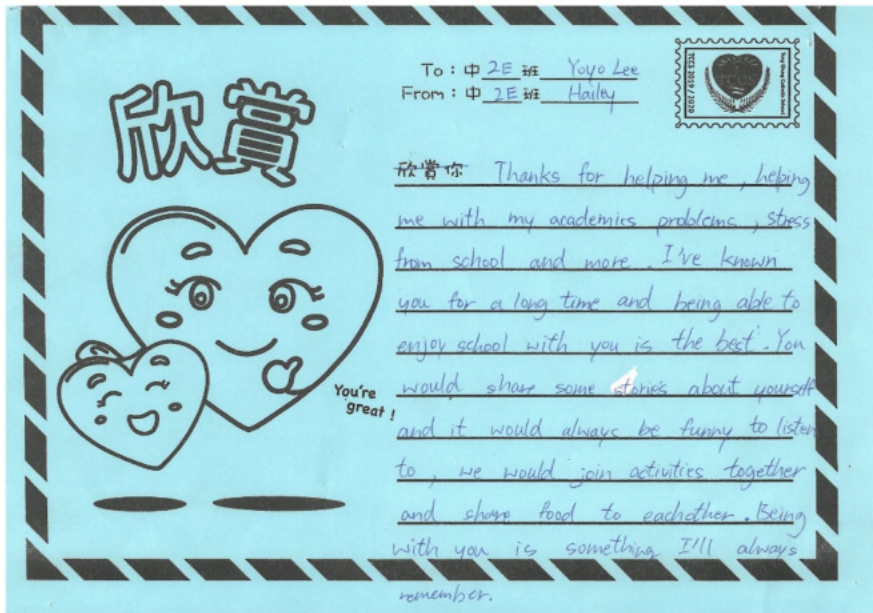 欣賞
To : 中 2E 班 Yoyo Lee
From : 中 2E 班 Hailey
TCCS 2019 / 2020
欣賞你 Thanks for helping me, helping
me with my academics problems, stress
from school and more. I've known
you for a long time and being able to
enjoy school with you is the best. You
would share some stories about yourself
and it would always be funny to listen
to, we would join activities together
and share food to eachother. Being
with you is something I'll always
remember.
You're
great !